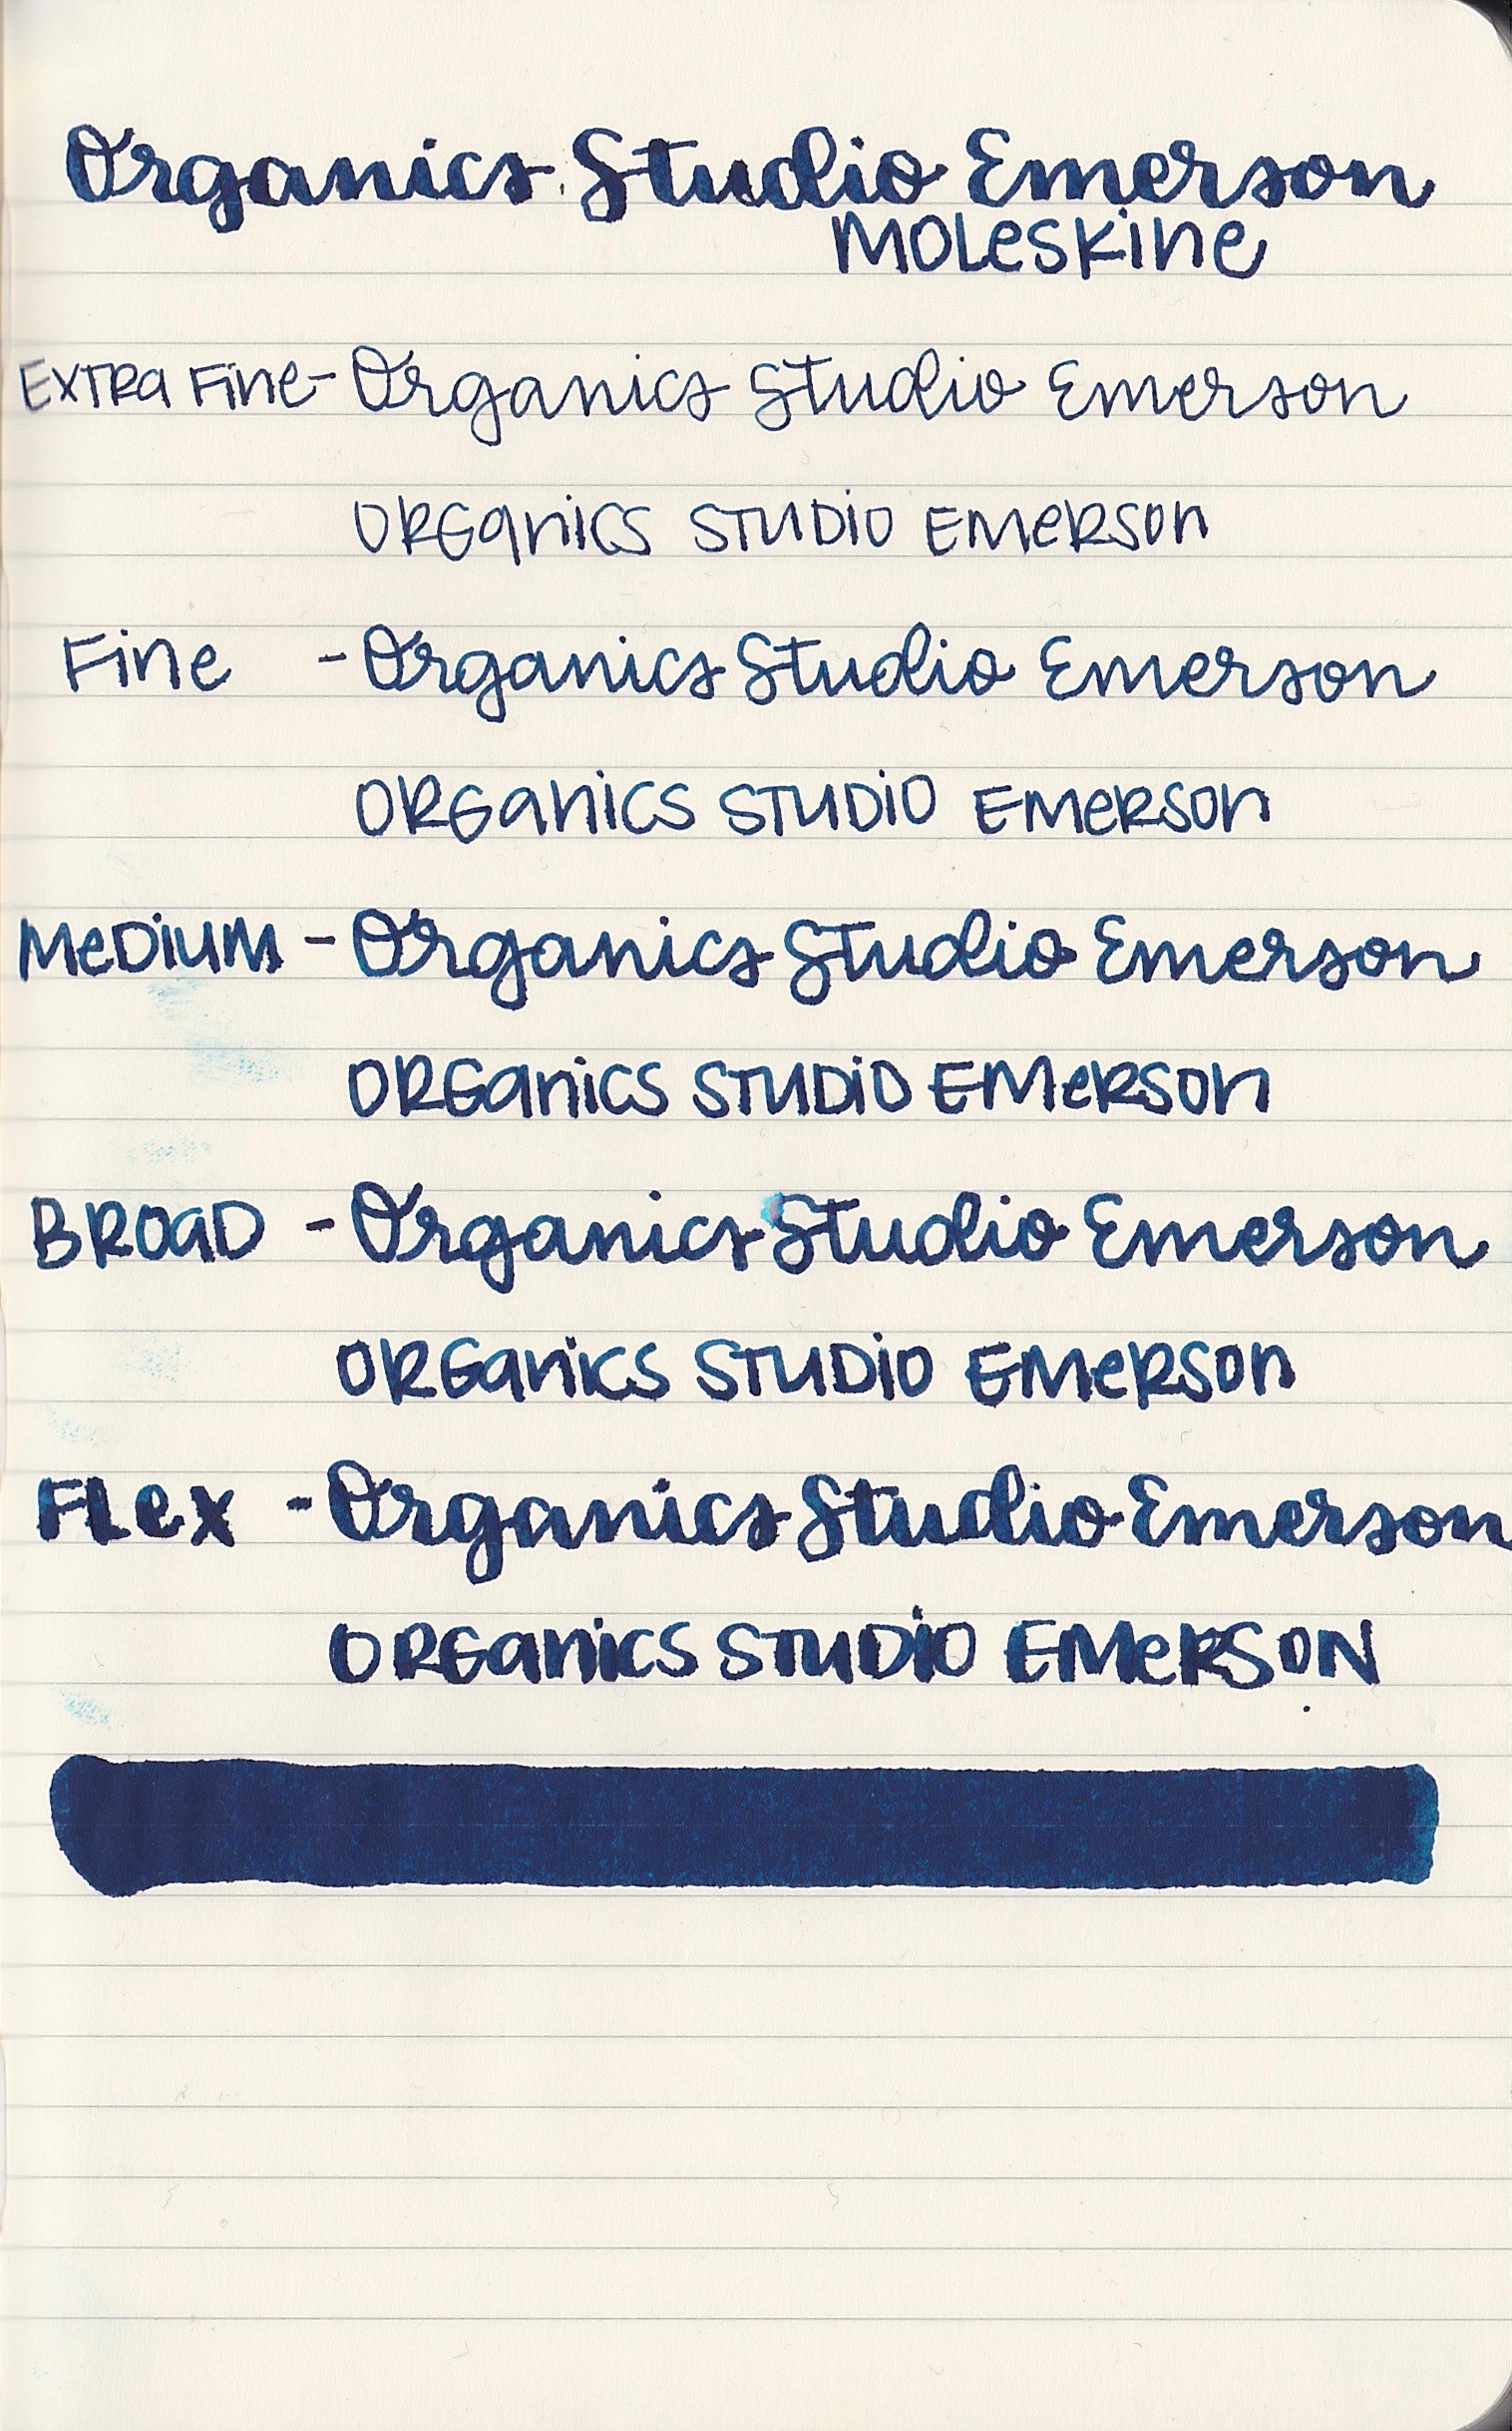 Organics Studio Emerson
Moleskine
Extra Fine - Organics Studio Emerson
Organics Studio Emerson
Fine - Organics Studio Emerson
Organics Studio Emerson
Medium - Organics Studio Emerson
Organics Studio Emerson
Broad - Organics Studio Emerson
Organics Studio Emerson
Flex - Organics Studio Emerson
Organics Studio Emerson